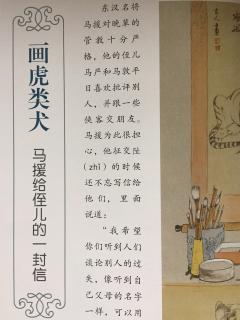 画虎类犬
马援给侄儿的一封信
东汉名将
马援对晚辈的
管教十分严
格，他的侄儿
马严和马敦平
日喜欢批评别
人，并跟一些
侠客交朋友。
马援为此很担
心，他征交阯
(zhǐ)的时候
还不忘写信给
他们，里面
说道：
“我希望
你们听到人们
谈论别人的过
失，像听到自
己父母的名字
一样，可以用